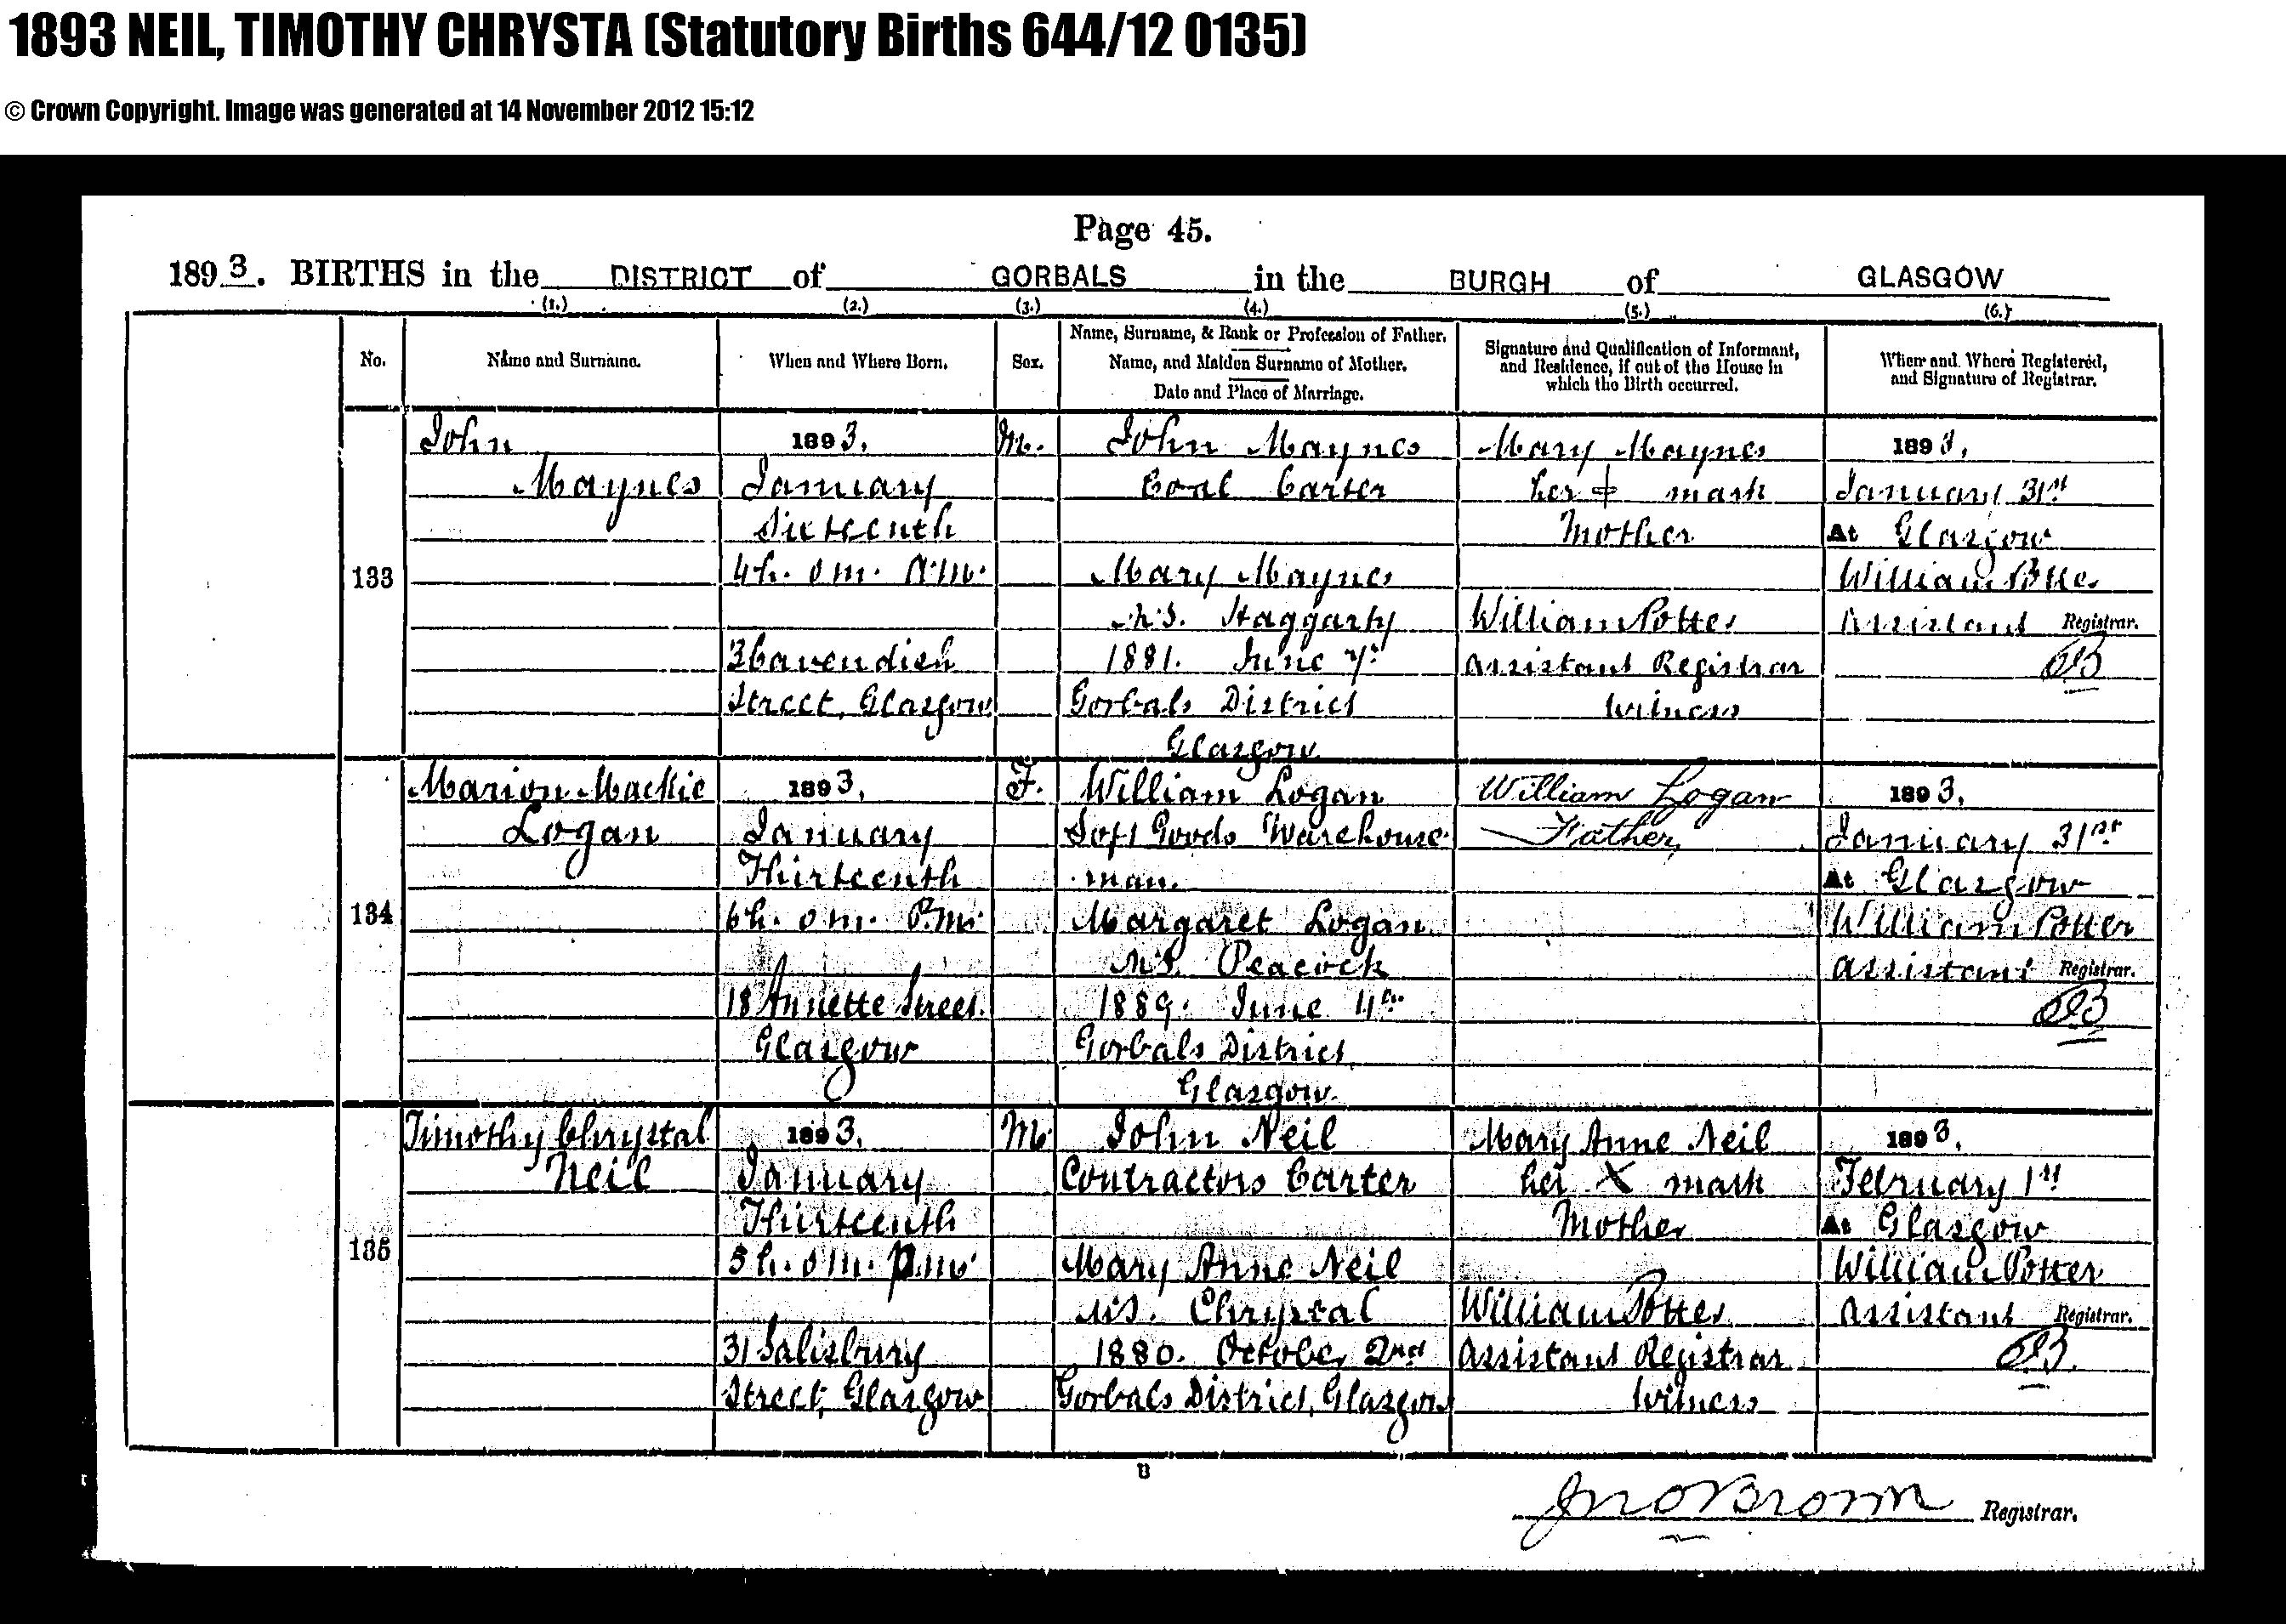 1893 NEIL, TIMOTHY CHRYSTA (Statutory Births 644/12 0135)
© Crown Copyright. Image was generated at 14 November 2012 15:12
Page 45.
1893. BIRTHS in the DISTRICT of GORBALS in the BURGH of GLASGOW
(1.) (2.) (3.) (4.) (5.) (6.)
No.
Name and Surname.
When and Where Born.
Sex.
Name, Surname, & Rank or Profession of Father.
Name, and Maiden Surname of Mother.
Date and Place of Marriage.
Signature and Qualification of Informant,
and Residence, if out of the House in
which the Birth occurred.
When and Where Registered,
and Signature of Registrar.
133
John
Maynes
1893.
January
Sixteenth
4h. 0m. A.M.
3 Cavendish
Street, Glasgow
M.
John Maynes
Coal Carter
Mary Maynes
M.S. Haggarty
1881. June
Gorbals District
Glasgow
Mary Maynes
her + mark
Mother
William Potter
Assistant Registrar
Witness
1893.
January 31st
At Glasgow
William Potter
Assistant Registrar.
134
Marion Mackie
Logan
1893.
January
Thirteenth
6h. 0m. P.M.
18 Annette Street
Glasgow
F.
William Logan
Soft Goods Warehouse
man.
Margaret Logan
M.S. Peacock
1889. June
Gorbals District
Glasgow.
William Logan
Father,
1893.
January 31st
At Glasgow
William Potter
Assistant Registrar.
135
Timothy Chrystal
Neil
1893.
January
Thirteenth
5h. 0m. p.m.
31 Salisbury
Street, Glasgow
M.
John Neil
Contractors Carter
Mary Anne Neil
M.S. Chrystal
1880. October 2nd
Gorbals District, Glasgow
Mary Anne Neil
her X mark
Mother
William Potter
Assistant Registrar
Witness
1893.
February 1st
At Glasgow
William Potter
Assistant Registrar.
B
Jno Brown Registrar.